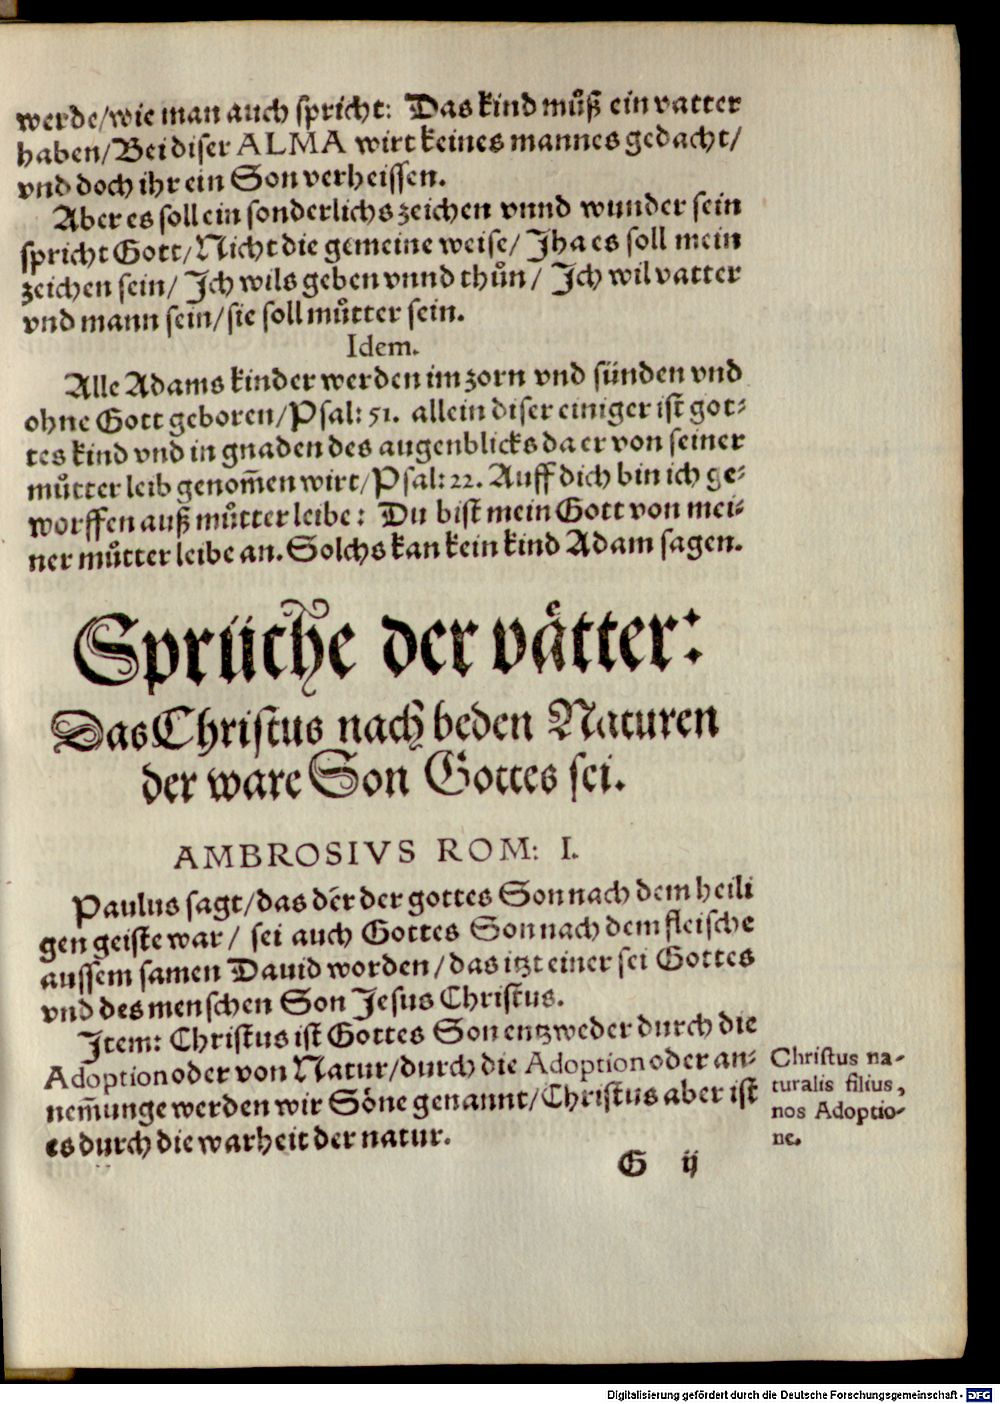 werde/wie man auch spricht: Das kind můß ein vatter
haben/Bei diser ALMA wirt keines mannes gedacht/
vnd doch ihr ein Son verheissen.
Aber es soll ein sonderlichs zeichen vnnd wunder sein
spricht Gott/Nicht die gemeine weise/ Jha es soll mein
zeichen sein/ Jch wils geben vnnd thůn/ Jch wil vatter
vnd mann sein/sie soll můtter sein.
Idem.
Alle Adams kinder werden im zorn vnd sünden vnd
ohne Gott geboren/Psal: 51. allein diser einiger ist got-
tes kind vnd in gnaden des augenblicks da er von seiner
můtter leib genom̄en wirt/Psal: 22. Auff dich bin ich ge-
worffen auß můtter leibe: Du bist mein Gott von mei-
ner můtter leibe an. Solchs kan kein kind Adam sagen.
Sprüche der våtter:
Das Christus nach beden Naturen
der ware Son Gottes sei.
AMBROSIVS ROM: I.
Paulus sagt/das dēr der gottes Son nach dem heili
gen geiste war/ sei auch Gottes Son nach dem fleische
aussem samen Dauid worden/das itzt einer sei Gottes
vnd des menschen Son Jesus Christus.
Jtem: Christus ist Gottes Son entzweder durch die
Adoption oder von Natur/durch die Adoption oder an-
nem̄unge werden wir Söne genannt/Christus aber ist
es durch die warheit der natur.
Christus na-
turalis filius,
nos Adoptio-
ne.
G ij
Digitalisierung gefördert durch die Deutsche Forschungsgemeinschaft - DFG